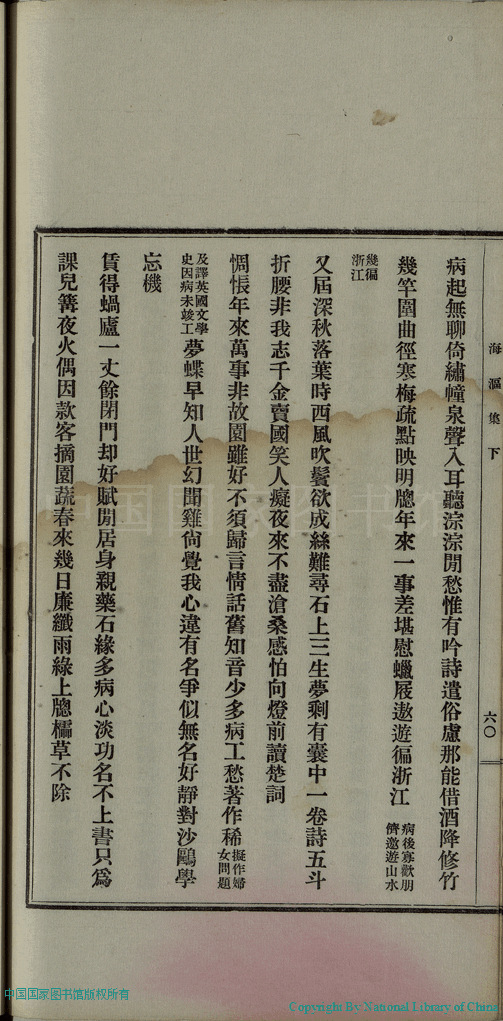 海漚集下
六〇
病起無聊倚繡幢泉聲入耳聽淙淙閒愁惟有吟詩遣俗慮那能借酒降修竹
幾竿圍曲徑寒梅疏點映明牕年來一事差堪慰蠟屐遨遊徧浙江病後寡歡朋
儕邀遊山水
幾徧
浙江
又屆深秋落葉時西風吹鬢欲成絲難尋石上三生夢剩有囊中一卷詩五斗
折腰非我志千金賣國笑人癡夜來不盡滄桑感怕向燈前讀楚詞
惆悵年來萬事非故園雖好不須歸言情話舊知音少多病工愁著作稀擬作婦
女問題
及譯英國文學
史因病未竣工夢蝶早知人世幻聞雞尙覺我心違有名爭似無名好靜對沙鷗學
忘機
賃得蝸廬一丈餘閉門却好賦閒居身親藥石緣多病心淡功名不上書只爲
課兒篝夜火偶因款客摘園蔬春來幾日廉纖雨綠上牕櫺草不除
中国国家图书馆
中国国家图书馆版权所有
Copyright By National Library of China